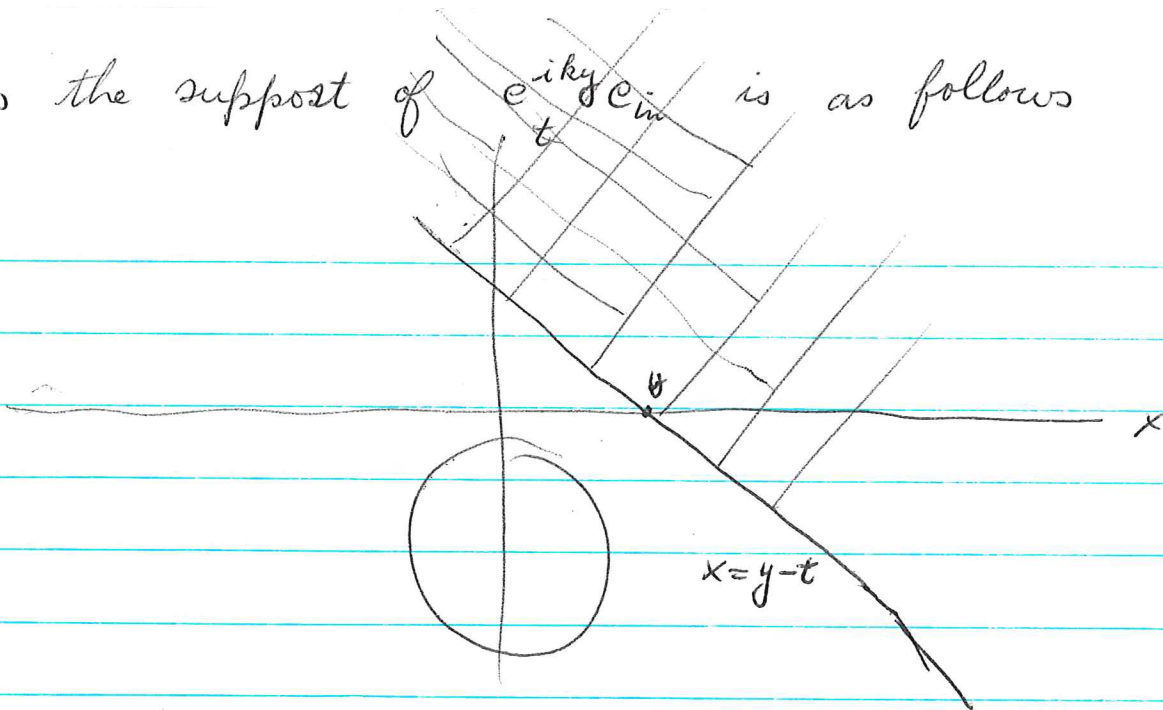 the support of e^{iky} e_{in} is as follows
t
y
x
x = y - t